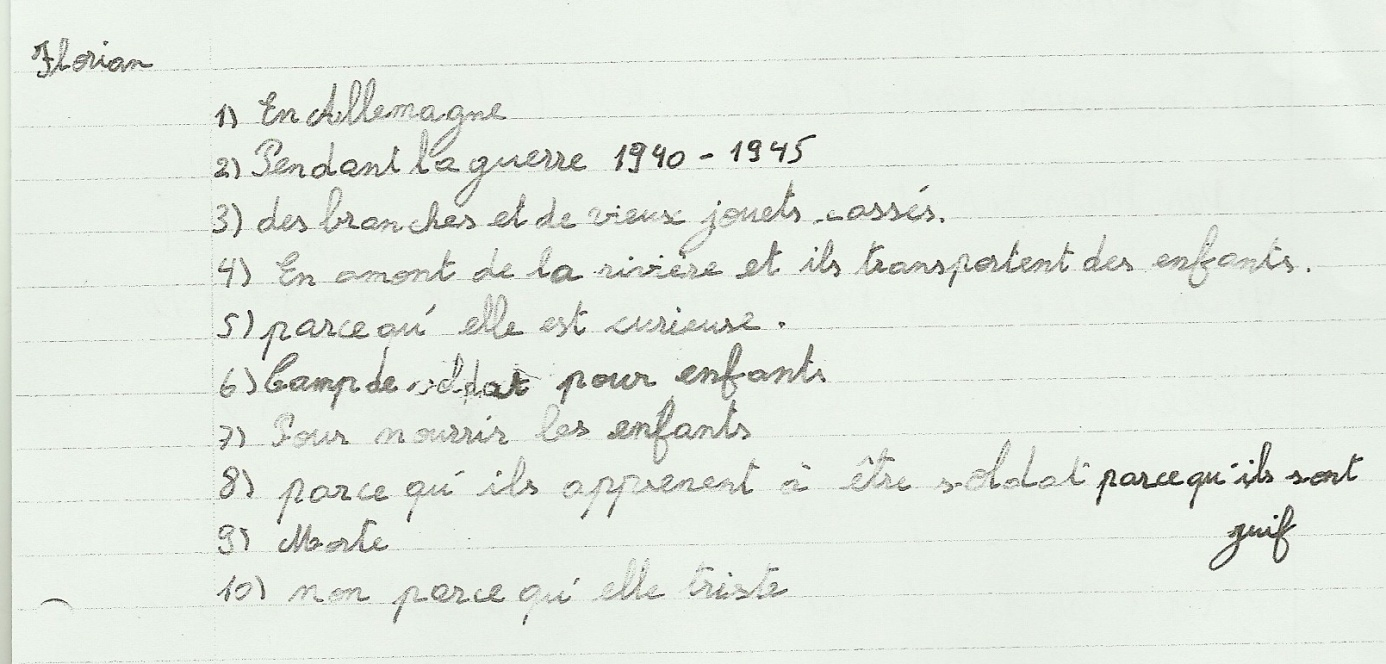 Florian
1) En Allemagne
2) Pendant la guerre 1940 - 1945
3) des branches et de vieux jouets cassés.
4) En amont de la rivière et ils transportent des enfants.
5) parce qu' elle est curieuse.
6) Camp de soldat pour enfants
7) Pour nourrir les enfants
8) parce qu' ils apprenent à être soldat parce qu'ils sont
guif
9) Morte
10) non parce qu' elle triste